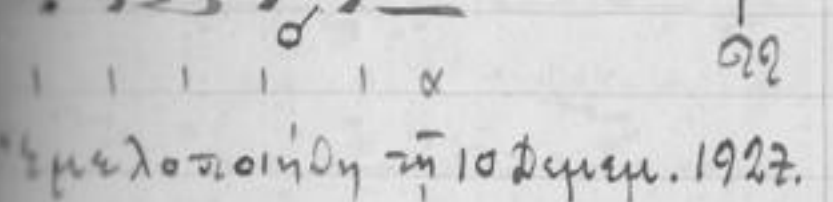 α
Ἐμελοποιήθη τῇ 10 Δεκεμ. 1927.